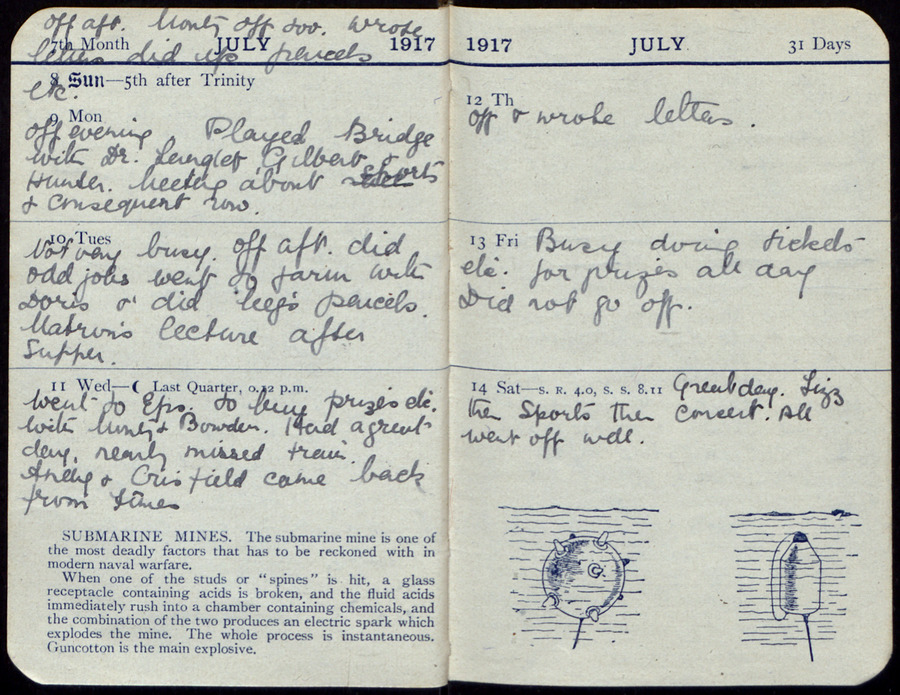 off aft. Monty off too. Wrote
7th Month JULY 1917
letters did up parcels
8 Sun—5th after Trinity
etc.
9 Mon
off evening Played Bridge
with Dr. Gilbert &
Hunter. Meeting about Sports
& consequent row.
10 Tues
Not very busy. Off aft. did
odd jobs went to farm with
Doris & did parcels.
Matron's lecture after
Supper.
11 Wed—☾ Last Quarter, 0.12 p.m.
Went to Eps. to buy prizes etc.
with Monty & Bowden. Had a great
day, nearly missed train.
& Crisfield came back
from
SUBMARINE MINES. The submarine mine is one of
the most deadly factors that has to be reckoned with in
modern naval warfare.
When one of the studs or "spines" is hit, a glass
receptacle containing acids is broken, and the fluid acids
immediately rush into a chamber containing chemicals, and
the combination of the two produces an electric spark which
explodes the mine. The whole process is instantaneous.
Guncotton is the main explosive.
1917 JULY 31 Days
12 Th
Off & wrote letters.
13 Fri Busy doing tickets
etc. for prizes all day
Did not go off.
14 Sat—S. R. 4.0, S. S. 8.11 Great day.
then Sports then Concert. All
went off well.